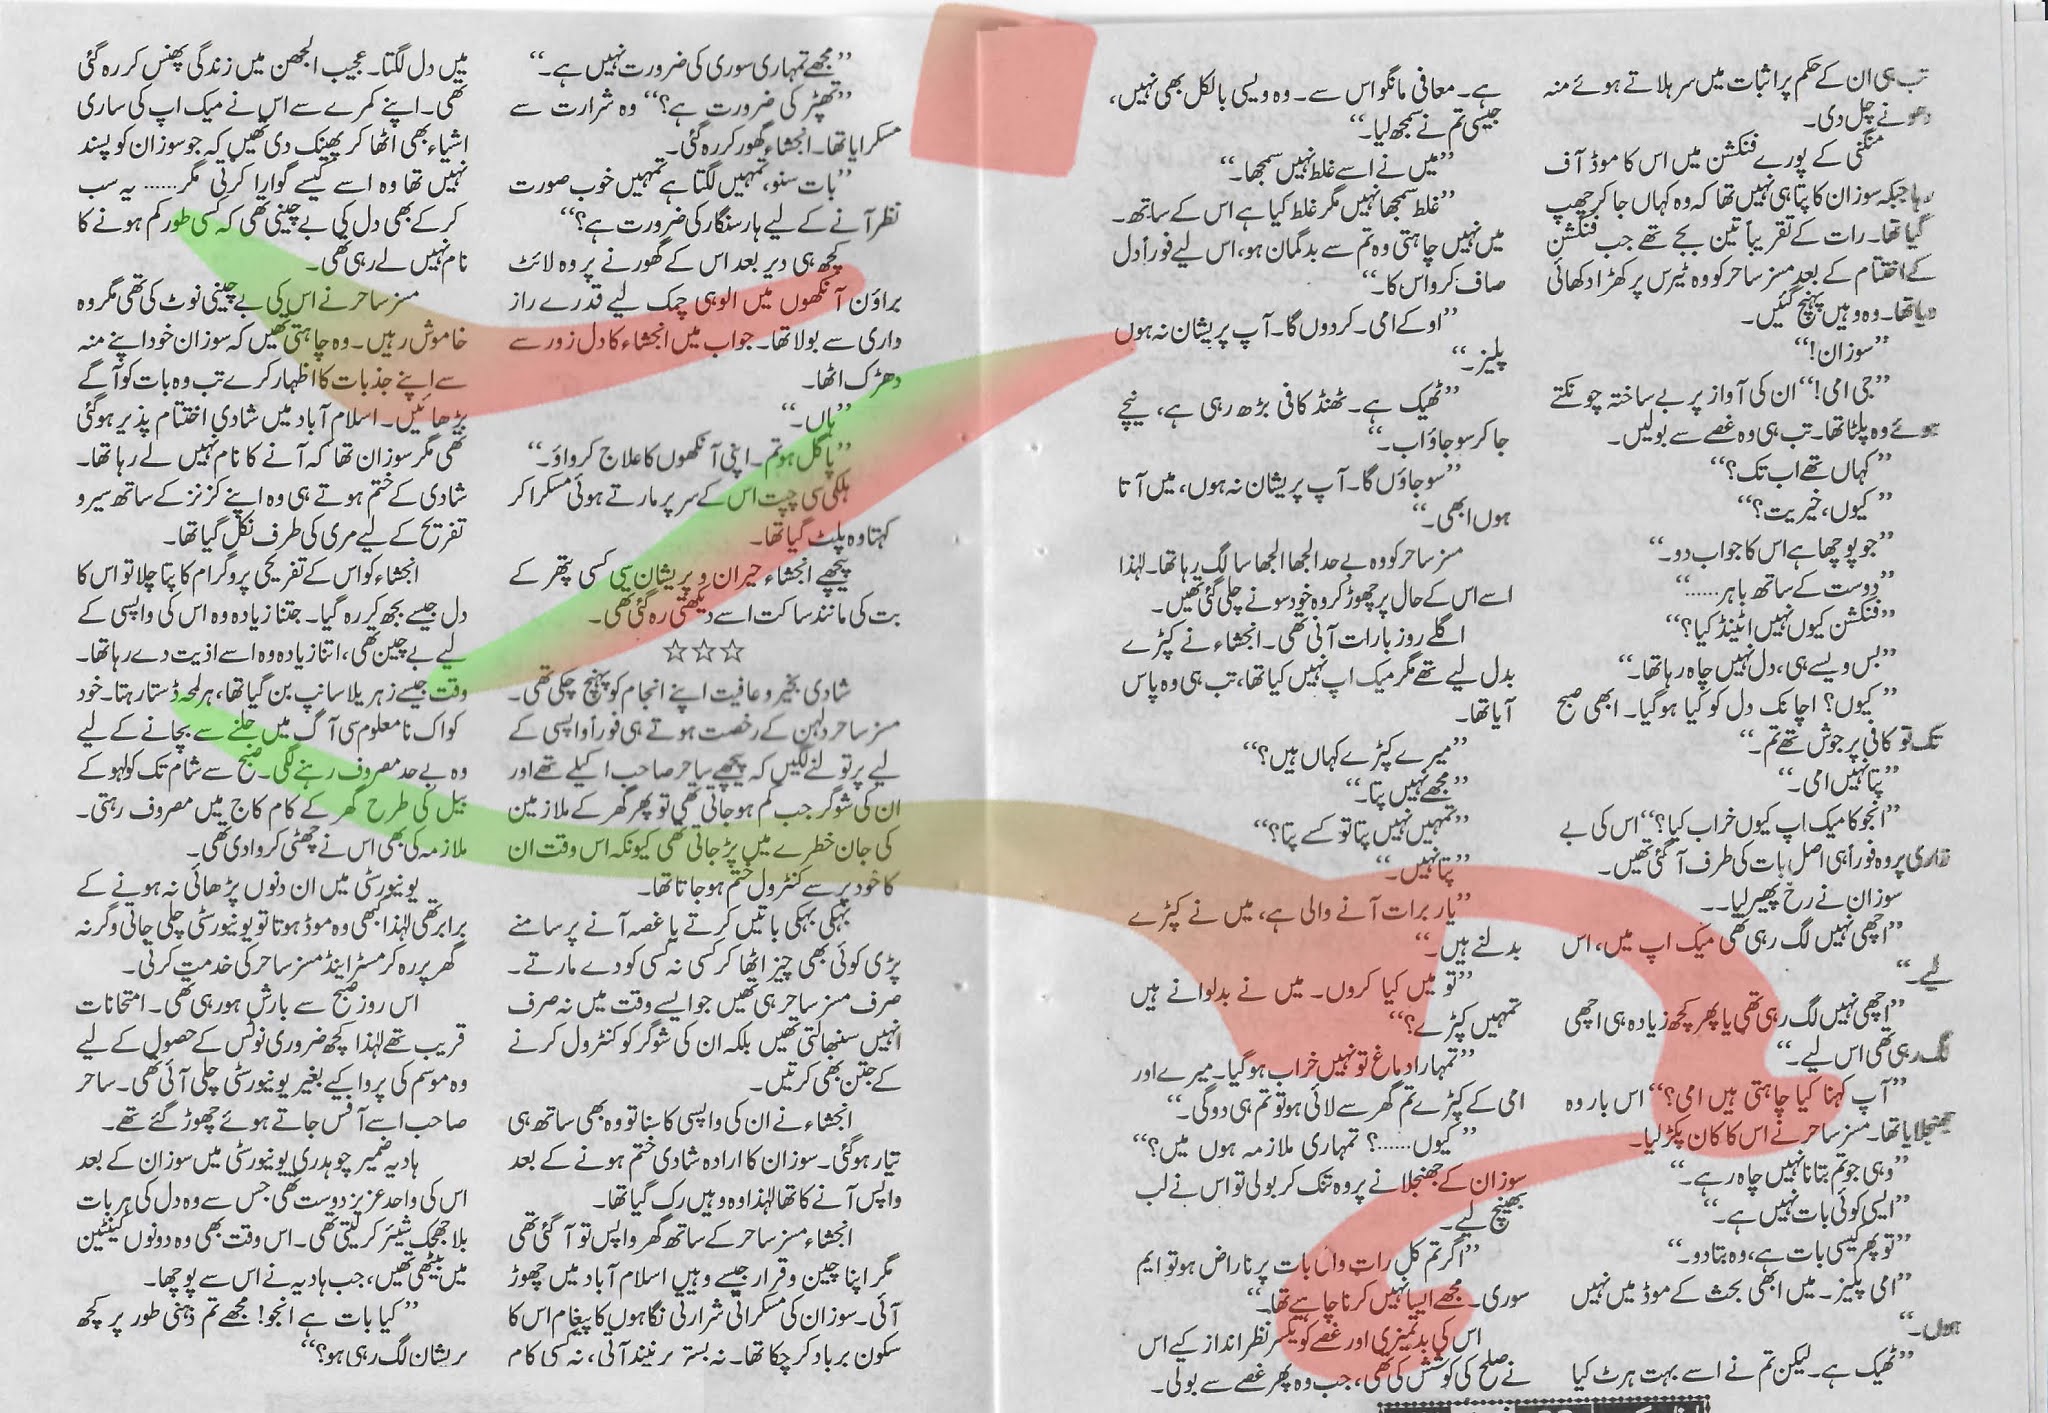 تب ہی ان کے حکم پر اثبات میں سر ہلاتے ہوئے منہ
دھونے چل دی۔
منگنی کے پورے فنکشن میں اس کا موڈ آف
رہا جبکہ سوزان کا پتا ہی نہیں تھا کہ وہ کہاں جا کر چھپ
گیا تھا۔ رات کے تقریباً تین بجے تھے جب فنکشن
کے اختتام کے بعد مسز ساحر کو وہ ٹیرس پر کھڑا دکھائی
دیا تھا۔ وہ وہیں پہنچ گئیں۔
’’سوزان!‘‘
’’جی امی!‘‘ ان کی آواز پر بے ساختہ چونکتے
ہوئے وہ پلٹا تھا۔ تب ہی وہ غصے سے بولیں۔
’’کہاں تھے اب تک؟‘‘
’’کیوں، خیریت؟‘‘
’’جو پوچھا ہے اس کا جواب دو۔‘‘
’’دوست کے ساتھ باہر......‘‘
’’فنکشن کیوں نہیں اٹینڈ کیا؟‘‘
’’بس ویسے ہی، دل نہیں چاہ رہا تھا۔‘‘
’’کیوں؟ اچانک دل کو کیا ہو گیا۔ ابھی صبح
تک تو کافی پرجوش تھے تم۔‘‘
’’پتا نہیں امی۔‘‘
’’انجو کا میک اپ کیوں خراب کیا؟‘‘ اس کی بے
زاری پر وہ فوراً ہی اصل بات کی طرف آ گئی تھیں۔
سوزان نے رخ پھیر لیا۔۔
’’اچھی نہیں لگ رہی تھی میک اپ میں، اس
لیے۔‘‘
’’اچھی نہیں لگ رہی تھی یا پھر کچھ زیادہ ہی اچھی
لگ رہی تھی اس لیے۔‘‘
’’آپ کہنا کیا چاہتی ہیں امی؟‘‘ اس بار وہ
جھنجلایا تھا۔ مسز ساحر نے اس کا کان پکڑ لیا۔
’’وہی جو تم بتانا نہیں چاہ رہے۔‘‘
’’ایسی کوئی بات نہیں ہے۔‘‘
’’تو پھر کیسی بات ہے، وہ بتا دو۔‘‘
’’امی پلیز۔ میں ابھی بحث کے موڈ میں نہیں
ہوں۔‘‘
’’ٹھیک ہے۔ لیکن تم نے اسے بہت ہرٹ کیا
ہے۔ معافی مانگو اس سے۔ وہ ویسی بالکل بھی نہیں،
جیسی تم نے سمجھ لیا۔‘‘
’’میں نے اسے غلط نہیں سمجھا۔‘‘
’’غلط سمجھا نہیں مگر غلط کیا ہے اس کے ساتھ۔
میں نہیں چاہتی وہ تم سے بدگمان ہو، اس لیے فوراً دل
صاف کرو اس کا۔‘‘
’’اوکے امی۔ کر دوں گا۔ آپ پریشان نہ ہوں
پلیز۔‘‘
’’ٹھیک ہے۔ ٹھنڈ کافی بڑھ رہی ہے، نیچے
جا کر سو جاؤ اب۔‘‘
’’سو جاؤں گا۔ آپ پریشان نہ ہوں، میں آتا
ہوں ابھی۔‘‘
مسز ساحر کو وہ بے حد الجھا الجھا سا لگ رہا تھا۔ لہٰذا
اسے اس کے حال پر چھوڑ کر وہ خود سونے چلی گئی تھیں۔
اگلے روز بارات آنی تھی۔ انجشاء نے کپڑے
بدل لیے تھے مگر میک اپ نہیں کیا تھا، تب ہی وہ پاس
آیا تھا۔
’’میرے کپڑے کہاں ہیں؟‘‘
’’مجھے نہیں پتا۔‘‘
’’تمہیں نہیں پتا تو کسے پتا؟‘‘
’’پتا نہیں۔‘‘
’’یار برات آنے والی ہے، میں نے کپڑے
بدلنے ہیں۔‘‘
’’تو میں کیا کروں۔ میں نے بدلوانے ہیں
تمہیں کپڑے؟‘‘
’’تمہارا دماغ تو نہیں خراب ہو گیا۔ میرے اور
امی کے کپڑے تم گھر سے لائی ہو تو تم ہی دو گی۔‘‘
’’کیوں......؟ تمہاری ملازمہ ہوں میں؟‘‘
سوزان کے جھنجلانے پر وہ تنک کر بولی تو اس نے لب
بھینچ لیے۔
’’اگر تم کل رات والی بات پر ناراض ہو تو ایم
سوری۔ مجھے ایسا نہیں کرنا چاہیے تھا۔‘‘
اس کی بدتمیزی اور غصے کو یکسر نظر انداز کیے اس
نے صلح کی کوشش کی تھی، جب وہ پھر غصے سے بولی۔
’’مجھے تمہاری سوری کی ضرورت نہیں ہے۔‘‘
’’تھپڑ کی ضرورت ہے؟‘‘ وہ شرارت سے
مسکرایا تھا۔ انجشاء گھور کر رہ گئی۔
’’بات سنو، تمہیں لگتا ہے تمہیں خوب صورت
نظر آنے کے لیے ہار سنگار کی ضرورت ہے؟‘‘
کچھ ہی دیر بعد اس کے گھورنے پر وہ لائٹ
براؤن آنکھوں میں الوہی چمک لیے قدرے راز
داری سے بولا تھا۔ جواب میں انجشاء کا دل زور سے
دھڑک اٹھا۔
’’ہاں۔‘‘
’’پاگل ہو تم۔ اپنی آنکھوں کا علاج کرواؤ۔‘‘
ہلکی سی چپت اس کے سر پر مارتے ہوئی مسکرا کر
کہتا وہ پلٹ گیا تھا۔
پیچھے انجشاء حیران و پریشان سی کسی پتھر کے
بت کی مانند ساکت اسے دیکھتی رہ گئی تھی۔
☆☆☆
شادی بخیر و عافیت اپنے انجام کو پہنچ چکی تھی۔
مسز ساحر دلہن کے رخصت ہوتے ہی فوراً واپسی کے
لیے پر تولنے لگیں کہ پیچھے ساحر صاحب اکیلے تھے اور
ان کی شوگر جب کم ہو جاتی تھی تو پھر گھر کے ملازمین
کی جان خطرے میں پڑ جاتی تھی کیونکہ اس وقت ان
کا خود پر سے کنٹرول ختم ہو جاتا تھا۔
بہکی بہکی باتیں کرتے یا غصہ آنے پر سامنے
پڑی کوئی بھی چیز اٹھا کر کسی نہ کسی کو دے مارتے۔
صرف مسز ساحر ہی تھیں جو ایسے وقت میں نہ صرف
انہیں سنبھالتی تھیں بلکہ ان کی شوگر کو کنٹرول کرنے
کے جتن بھی کرتیں۔
انجشاء نے ان کی واپسی کا سنا تو وہ بھی ساتھ ہی
تیار ہو گئی۔ سوزان کا ارادہ شادی ختم ہونے کے بعد
واپس آنے کا تھا لہٰذا وہ وہیں رک گیا تھا۔
انجشاء مسز ساحر کے ساتھ گھر واپس تو آ گئی تھی
مگر اپنا چین و قرار جیسے وہیں اسلام آباد میں چھوڑ
آئی۔ سوزان کی مسکراتی شرارتی نگاہوں کا پیغام اس کا
سکون برباد کر چکا تھا۔ نہ بستر پر نیند آتی، نہ کسی کام
میں دل لگتا۔ عجیب الجھن میں زندگی پھنس کر رہ گئی
تھی۔ اپنے کمرے سے اس نے میک اپ کی ساری
اشیاء بھی اٹھا کر پھینک دی تھیں کہ جو سوزان کو پسند
نہیں تھا وہ اسے کیسے گوارا کرتی مگر...... یہ سب
کر کے بھی دل کی بے چینی تھی کہ کسی طور کم ہونے کا
نام نہیں لے رہی تھی۔
مسز ساحر نے اس کی بے چینی نوٹ کی تھی مگر وہ
خاموش رہیں۔ وہ چاہتی تھیں کہ سوزان خود اپنے منہ
سے اپنے جذبات کا اظہار کرے تب وہ بات کو آگے
بڑھائیں۔ اسلام آباد میں شادی اختتام پذیر ہو گئی
تھی مگر سوزان تھا کہ آنے کا نام نہیں لے رہا تھا۔
شادی کے ختم ہوتے ہی وہ اپنے کزنز کے ساتھ سیر و
تفریح کے لیے مری کی طرف نکل گیا تھا۔
انجشاء کو اس کے تفریحی پروگرام کا پتا چلا تو اس کا
دل جیسے بجھ کر رہ گیا۔ جتنا زیادہ وہ اس کی واپسی کے
لیے بے چین تھی، اتنا زیادہ وہ اسے اذیت دے رہا تھا۔
وقت جیسے زہریلا سانپ بن گیا تھا، ہر لمحہ ڈستا رہتا۔ خود
کو اک نامعلوم سی آگ میں جلنے سے بچانے کے لیے
وہ بے حد مصروف رہنے لگی۔ صبح سے شام تک کولہو کے
بیل کی طرح گھر کے کام کاج میں مصروف رہتی۔
ملازمہ کی بھی اس نے چھٹی کروا دی تھی۔
یونیورسٹی میں ان دنوں پڑھائی نہ ہونے کے
برابر تھی لہٰذا ابھی وہ موڈ ہوتا تو یونیورسٹی چلی جاتی وگرنہ
گھر پر رہ کر مسٹر اینڈ مسز ساحر کی خدمت کرتی۔
اس روز صبح سے بارش ہو رہی تھی۔ امتحانات
قریب تھے لہٰذا کچھ ضروری نوٹس کے حصول کے لیے
وہ موسم کی پروا کیے بغیر یونیورسٹی چلی آئی تھی۔ ساحر
صاحب اسے آفس جاتے ہوئے چھوڑ گئے تھے۔
ہادیہ ضمیر چوہدری یونیورسٹی میں سوزان کے بعد
اس کی واحد عزیز دوست تھی جس سے وہ دل کی ہر بات
بلا جھجک شیئر کر لیتی تھی۔ اس وقت بھی وہ دونوں کینٹین
میں بیٹھی تھیں، جب ہادیہ نے اس سے پوچھا۔
’’کیا بات ہے انجو! مجھے تم ذہنی طور پر کچھ
پریشان لگ رہی ہو؟‘‘